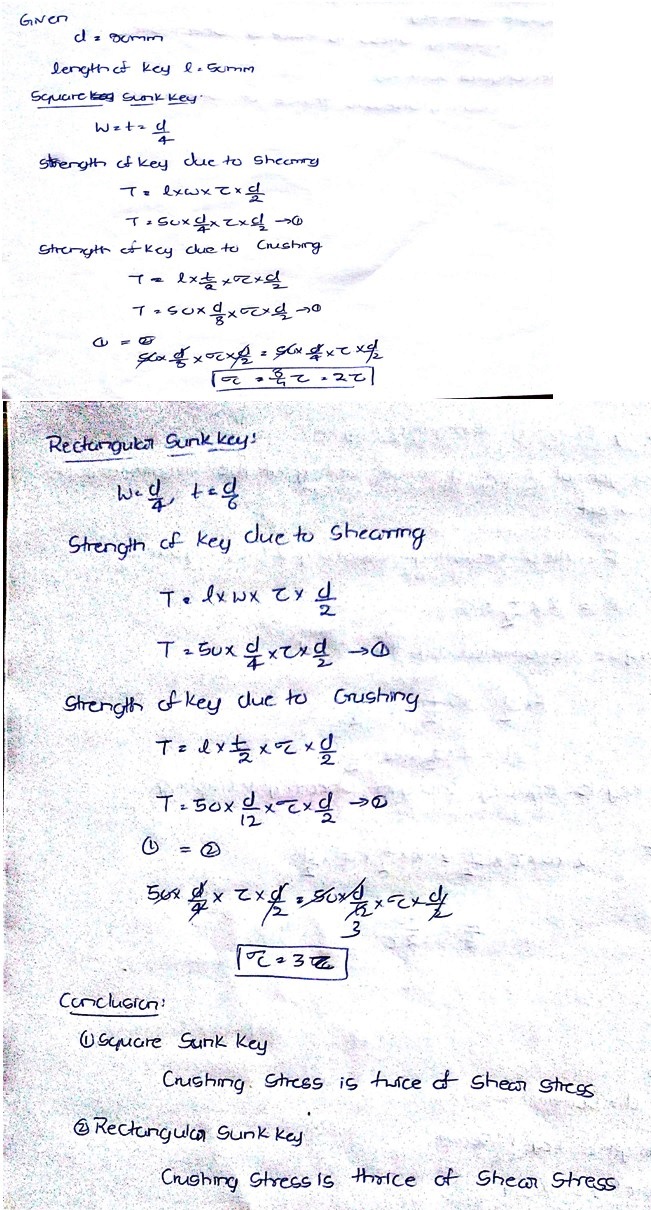 Given
d = 80mm
length of key l = 50mm
Square Sunk key.
W = t = d/4
Strength of key due to Shearing
T = l×w×τ×d/2
T = 50×d/4×τ×d/2 →①
Strength of key due to Crushing
T = l×t/2×σc×d/2
T = 50×d/8×σc×d/2 →①
① = ②
50×d/8×σc×d/2 = 50×d/4×τ×d/2
σc = 8/4 τ = 2τ
Rectangular Sunk key:
W = d/4, t = d/6
Strength of key due to Shearing
T = l×w×τ×d/2
T = 50×d/4×τ×d/2 →①
Strength of key due to Crushing
T = l×t/2×σc×d/2
T = 50×d/12×σc×d/2 →②
① = ②
50×d/4×τ×d/2 = 50×d/12×σc×d/2
3
σc = 3τ
Conclusion:
① Square Sunk Key
Crushing Stress is twice of Shear Stress
② Rectangular Sunk Key
Crushing Stress is thrice of Shear Stress